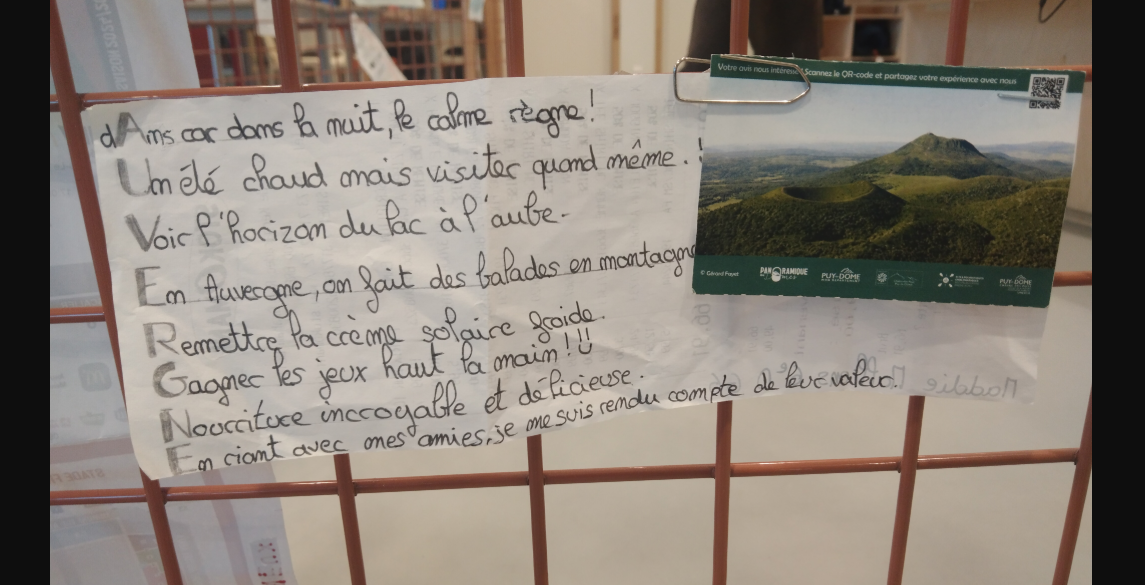 Votre avis nous intéresse Scannez le QR-code et partagez votre expérience avec nous
dAms car dans la nuit, le calme règne !
Un été chaud mais visiter quand même. !
Voir l'horizon du lac à l'aube.
En Auvergne, on fait des balades en montagne
Remettre la crème solaire froide.
Gagner les jeux haut la main !!!
Nourriture incroyable et délicieuse.
En riant avec mes amies, je me suis rendu compte de leur valeur.
© Gérard Fayet
PANORAMIQUE
PUY-DE-DÔME
PUY-DE-DÔME